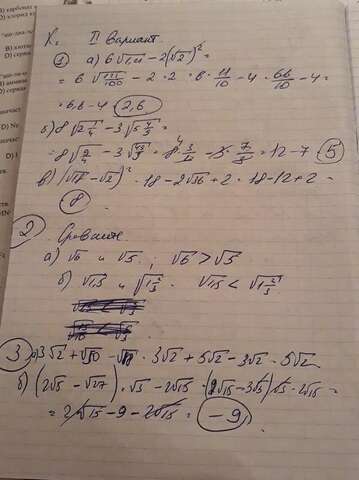 К. II Вариант.
① а) 6√1,21 - 2(√2)² =
= 6 √121/100 - 2 · 2 = 6 · 11/10 - 4 = 66/10 - 4 =
= 6,6 - 4 = 2,6
б) 8√2 1/4 - 3√5 4/9 =
= 8√9/4 - 3√49/9 = 8 · 3/2 - 3 · 7/3 = 12 - 7 = 5
в) (√18 - √2)² = 18 - 2√36 + 2 = 18 - 12 + 2 =
8
2 Сравните
а) √6 и √5 ; √6 > √5
б) √1,5 и √1 2/3 √1,5 < √1 2/3
3 а) 3√2 + √50 - √18 = 3√2 + 5√2 - 3√2 = 5√2
б) (2√5 - √27) · √3 - 2√15 = (2√5 - 3√3)√3 - 2√15 =
= 2√15 - 9 - 2√15 = -9